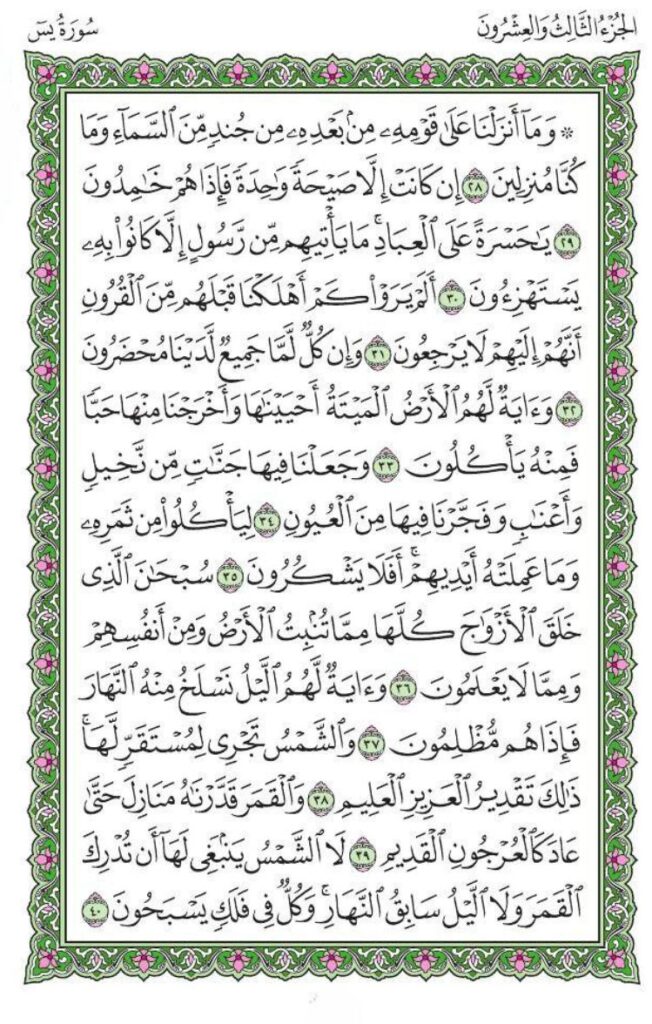 الجُزْءُ الثَّالِثُ وَالعِشْرُونَ سُورَةُ يسٓ
۞ وَمَآ أَنزَلۡنَا عَلَىٰ قَوۡمِهِۦ مِنۢ بَعۡدِهِۦ مِن جُندٖ مِّنَ ٱلسَّمَآءِ وَمَا
كُنَّا مُنزِلِينَ ٢٨ إِن كَانَتۡ إِلَّا صَيۡحَةٗ وَٰحِدَةٗ فَإِذَا هُمۡ خَٰمِدُونَ
٢٩ يَٰحَسۡرَةً عَلَى ٱلۡعِبَادِۚ مَا يَأۡتِيهِم مِّن رَّسُولٍ إِلَّا كَانُواْ بِهِۦ
يَسۡتَهۡزِءُونَ ٣٠ أَلَمۡ يَرَوۡاْ كَمۡ أَهۡلَكۡنَا قَبۡلَهُم مِّنَ ٱلۡقُرُونِ
أَنَّهُمۡ إِلَيۡهِمۡ لَا يَرۡجِعُونَ ٣١ وَإِن كُلّٞ لَّمَّا جَمِيعٞ لَّدَيۡنَا مُحۡضَرُونَ
٣٢ وَءَايَةٞ لَّهُمُ ٱلۡأَرۡضُ ٱلۡمَيۡتَةُ أَحۡيَيۡنَٰهَا وَأَخۡرَجۡنَا مِنۡهَا حَبّٗا
فَمِنۡهُ يَأۡكُلُونَ ٣٣ وَجَعَلۡنَا فِيهَا جَنَّٰتٖ مِّن نَّخِيلٖ
وَأَعۡنَٰبٖ وَفَجَّرۡنَا فِيهَا مِنَ ٱلۡعُيُونِ ٣٤ لِيَأۡكُلُواْ مِن ثَمَرِهِۦ
وَمَا عَمِلَتۡهُ أَيۡدِيهِمۡۚ أَفَلَا يَشۡكُرُونَ ٣٥ سُبۡحَٰنَ ٱلَّذِي
خَلَقَ ٱلۡأَزۡوَٰجَ كُلَّهَا مِمَّا تُنۢبِتُ ٱلۡأَرۡضُ وَمِنۡ أَنفُسِهِمۡ
وَمِمَّا لَا يَعۡلَمُونَ ٣٦ وَءَايَةٞ لَّهُمُ ٱلَّيۡلُ نَسۡلَخُ مِنۡهُ ٱلنَّهَارَ
فَإِذَا هُم مُّظۡلِمُونَ ٣٧ وَٱلشَّمۡسُ تَجۡرِي لِمُسۡتَقَرّٖ لَّهَاۚ
ذَٰلِكَ تَقۡدِيرُ ٱلۡعَزِيزِ ٱلۡعَلِيمِ ٣٨ وَٱلۡقَمَرَ قَدَّرۡنَٰهُ مَنَازِلَ حَتَّىٰ
عَادَ كَٱلۡعُرۡجُونِ ٱلۡقَدِيمِ ٣٩ لَا ٱلشَّمۡسُ يَنۢبَغِي لَهَآ أَن تُدۡرِكَ
ٱلۡقَمَرَ وَلَا ٱلَّيۡلُ سَابِقُ ٱلنَّهَارِۚ وَكُلّٞ فِي فَلَكٖ يَسۡبَحُونَ ٤٠